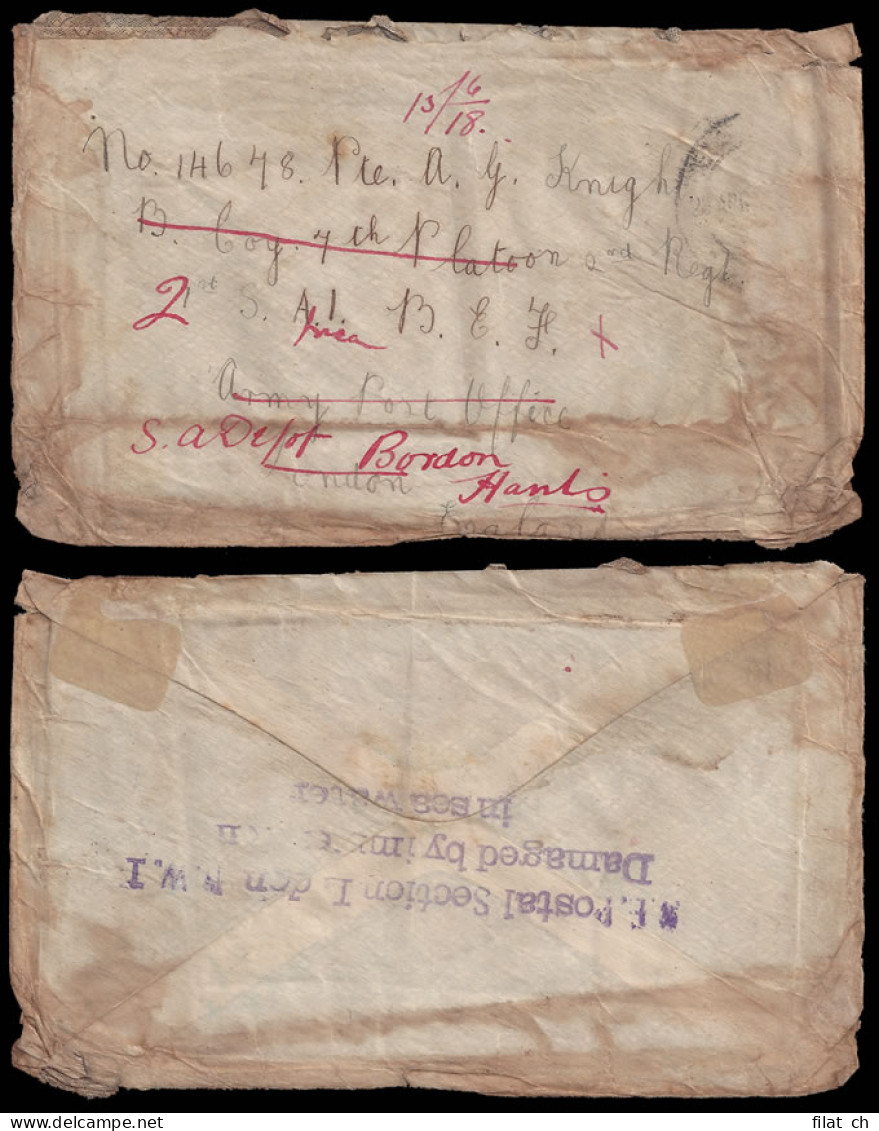 15/6/18.
No. 14678. Pte. A. G. Knigh
B. Coy. 7th Platoon 2nd Regt.
2 1st S. A. I. B. E. F. +
Army Post Office
S. A Depot Bordon
London Hants
England
Postal Section L don N.W.1
Damaged by imm
in sea water
filat ch